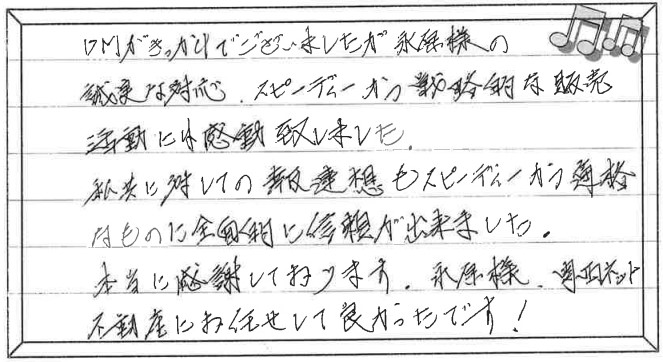 DMがきっかけでございましたが永原様の
誠実な対応、スピーディーかつ戦略的な販売
活動には感動致しました。
私共に対しての報連想もスピーディーかつ適格
なものに全面的に信頼が出来ました。
本当に感謝しております。永原様、ネット
不動産にお任せして良かったです！